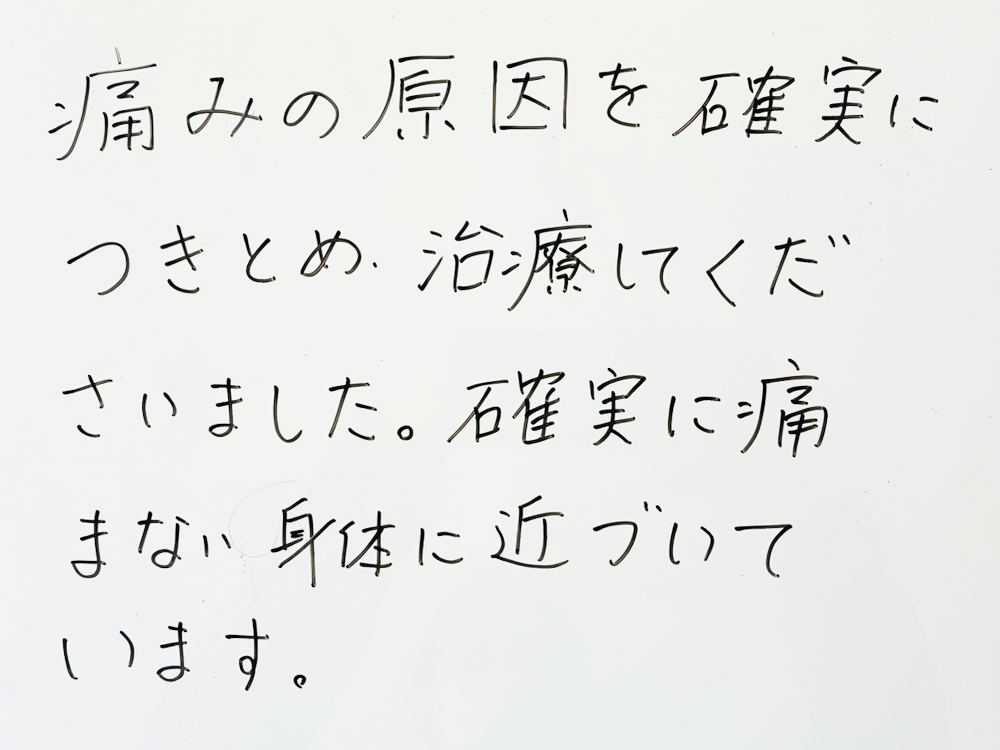 痛みの原因を確実に
つきとめ、治療してくだ
さいました。確実に痛
まない身体に近づいて
います。